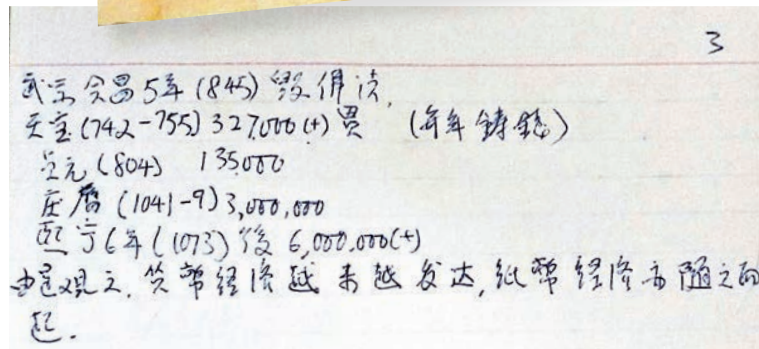 3
武宗会昌5年(845)毁佛法,
天宝(742-755)327,000(+)貫 (每年鋳錢)
元(804) 135,000
庆曆(1041-9)3,000,000
熙宁6年(1073)後 6,000,000(+)
由是观之,錢幣经济越来越发达,纸幣经济亦随之而
起.